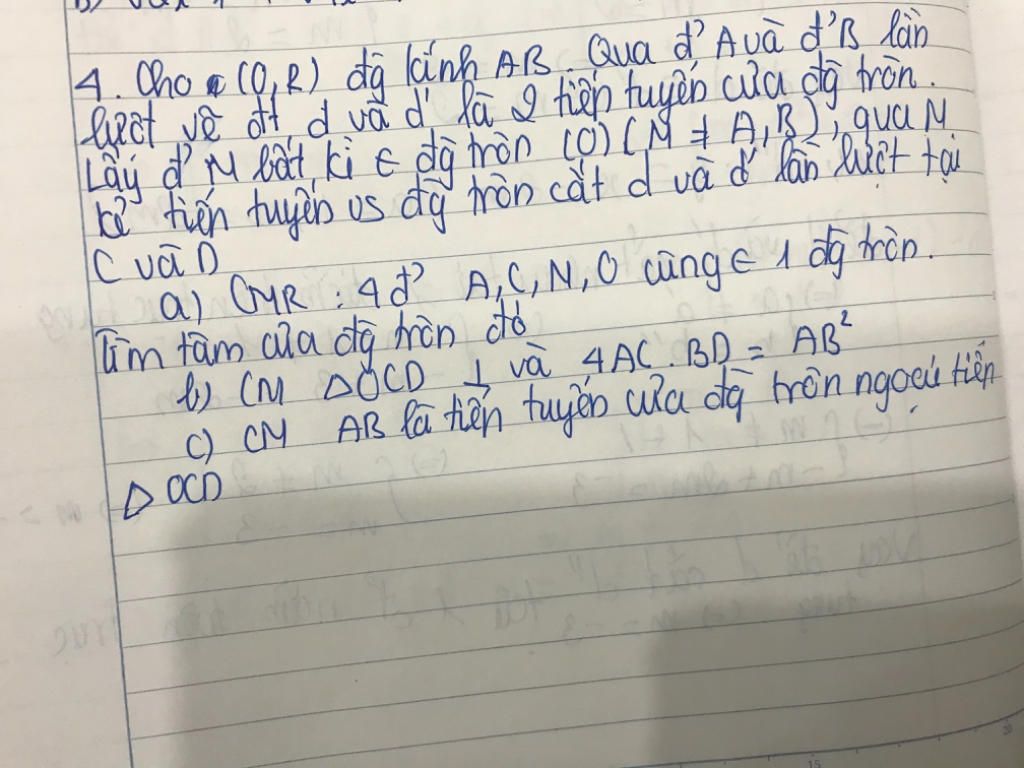 4. Cho (O,R) đg kính AB. Qua đ' A và đ' B lần
lượt vẽ đt d và d' là 2 tiếp tuyến của đg tròn.
Lấy đ' M bất kì ∈ đg tròn (O) (M ≠ A,B), qua M
kẻ tiếp tuyến vs đg tròn cắt d và d' lần lượt tại
C và D
a) CMR : 4 đ' A, C, M, O cùng ∈ 1 đg tròn.
Tìm tâm của đg tròn đó
b) CM △ OCD ⊥ và 4AC.BD = AB²
c) CM AB là tiếp tuyến của đg tròn ngoại tiếp
△ OCD